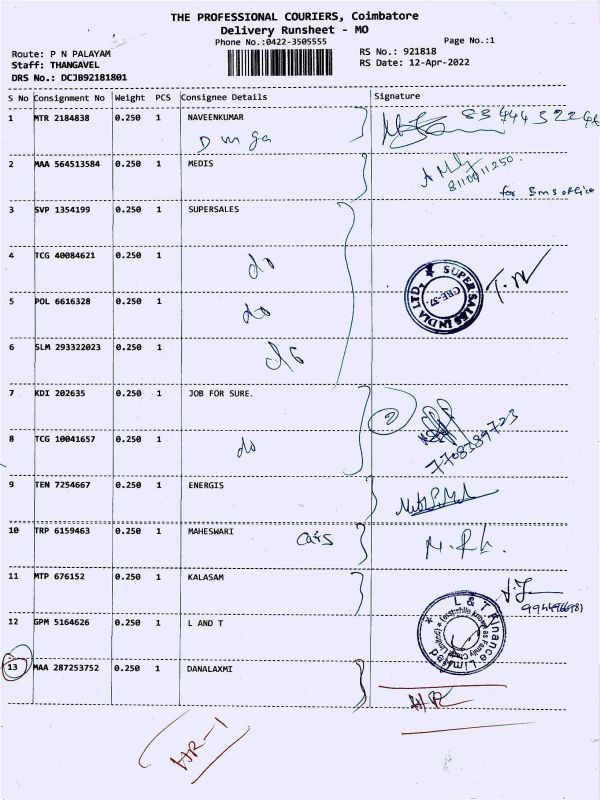 THE PROFESSIONAL COURIERS, Coimbatore
Delivery Runsheet - MO
Phone No.:0422-3505555
Page No.:1
Route: P N PALAYAM
RS No.: 921818
Staff: THANGAVEL
RS Date: 12-Apr-2022
DRS No.: DCJB92181801
S No Consignment No Weight PCS Consignee Details Signature
1 MTR 2184838 0.250 1 NAVEENKUMAR
Durga
2 MAA 564513584 0.250 1 MEDIS
8110011250.
for sms office
3 SVP 1354199 0.250 1 SUPERSALES
4 TCG 40084621 0.250 1
do
SUPER SALES INDIA LTD.
CBE-37.
5 POL 6616328 0.250 1
do
6 SLM 293322023 0.250 1
do
7 KDI 202635 0.250 1 JOB FOR SURE.
2
8 TCG 10041657 0.250 1
do
7708389723
9 TEN 7254667 0.250 1 ENERGIS
10 TRP 6159463 0.250 1 MAHESWARI
cars
11 MTP 676152 0.250 1 KALASAM
12 GPM 5164626 0.250 1 L AND T
L & T Finance Limited
13 MAA 287253752 0.250 1 DANALAXMI
HR
HR-1